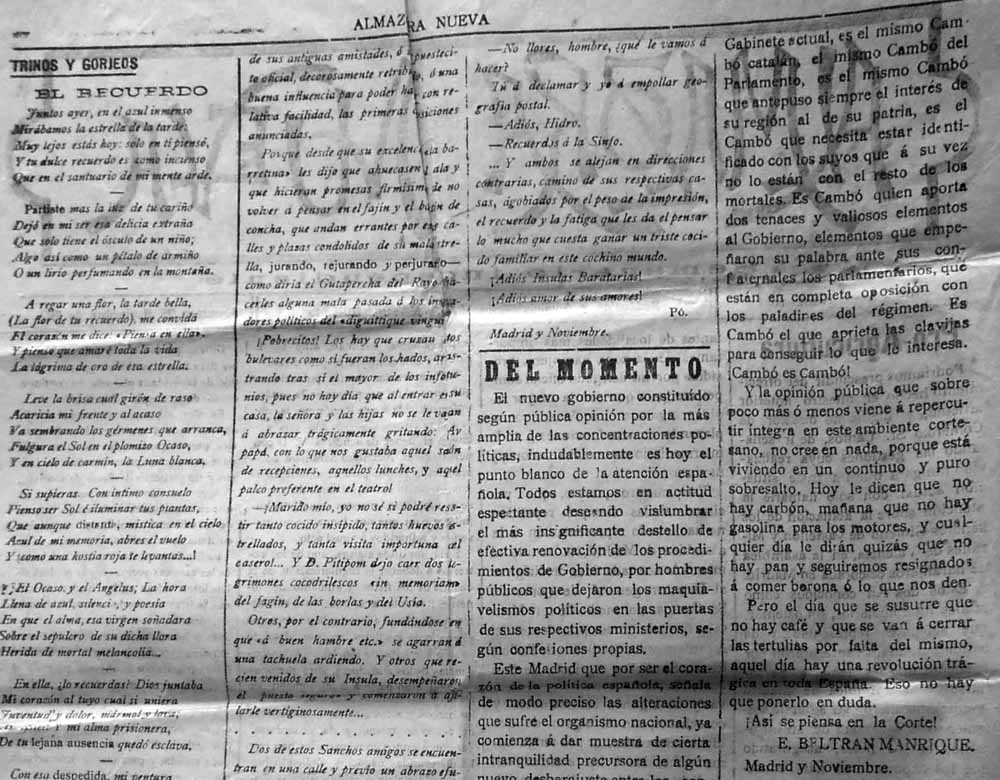 ALMAZARA NUEVA
TRINOS Y GORJEOS
EL RECUERDO
Juntos ayer, en el azul inmenso
Mirábamos la estrella de la tarde:
Muy lejos estás hoy: solo en ti pienso,
Y tu dulce recuerdo es como incienso
Que en el santuario de mi mente arde.
Partiste mas la luz de tu cariño
Dejó en mi ser esa delicia extraña
Que solo tiene el ósculo de un niño;
Algo así como un pétalo de armiño
O un lirio perfumando en la montaña.
A regar una flor, la tarde bella,
(La flor de tu recuerdo), me convida
El corazón me dice: «Piensa en ella».
Y pienso que amaré toda la vida
La lágrima de oro de esa estrella.
Leve la brisa cual girón de raso
Acaricia mi frente y al acaso
Va sembrando los gérmenes que arranca,
Fulgura el Sol en el plomizo Ocaso,
Y en cielo de carmín, la Luna blanca.
Si supieras. Con intimo consuelo
Pienso ser Sol é iluminar tus plantas,
Que aunque distante, mistica en el cielo
Azul de mi memoria, abres el vuelo
Y como una hostia roja te levantas...!
¡El Ocaso, y el Angelus; La hora
Llena de azul, silencio, y poesia
En que el alma, esa virgen soñadara
Sobre el sepulcro de su dicha llora
Herida de mortal melancolia...
En ella, ¿lo recuerdas? Dios juntaba
Mi corazón al tuyo cual si uniera
Juventud y dolor, mármol y lava;
mi alma prisionera,
De tu lejana ausencia quedó esclava.
Con esa despedida, mi ventura
de sus antiguas amistades, ó puestecite
oficial, decorosamente retribuido, ó una
buena influencia para poder hacer con relativa
facilidad, las primeras posiciones
anunciadas.
Porque desde que su excelencia «la barretina»
les dijo que ahuecasen ala y
que hicieran promesas firmísimas de no
volver á pensar en el fajín y el bastón de
concha, que andan errantes por esas
calles y plazas condolidos de su mala estrella,
jurando, rejurando y perjurando—
como diria el Gutapercha del Rayo—hacerles
alguna mala pasada á los invasores
políticos del «diguittique vingui»
¡Pobrecitos! Los hay que cruzan los
bulevares como si fueran los hados, arastrando
tras si el mayor de los infortunios,
pues no hay dia que al entrar en su
casa, la señora y las hijas no se le vayan
á abrazar trágicamente gritando: Ay
papá, con lo que nos gustaba aquel salón
de recepciones, aquellos lunches, y aquel
palco preferente en el teatro!
—¡Marido mio, yo no sé si podré resistir
tanto cocido insípido, tantos huevos estrellados,
y tanta visita importuna del
casero!... Y D. Pitipom dejo caer dos lagrimones
cocodrilescos «in memoriam»
del fagin, de las borlas y del Usía.
Otros, por el contrario, fundándose en
que «á buen hambre etc.» se agarran á
una tachuela ardiendo. Y otros que recien
venidos de su Insula, desempeñaron
el puesto seguro y comenzaron á afilarle
vertiginosamente...
Dos de estos Sanchos amigos se encuentran
en una calle y previo un abrazo efu-
—No llores, hombre, ¿qué le vamos á
hacer?
Tú á declamar y yo á empollar geografía
postal.
—Adiós, Hidro.
—Recuerdos á la Sinfo.
... Y ambos se alejan en direcciones
contrarias, camino de sus respectivas casas,
agobiados por el peso de la impresión,
el recuerdo y la fatiga que les da el pensar
lo mucho que cuesta ganar un triste cocido
familiar en este cochino mundo.
¡Adiós Insulas Baratarias!
¡Adiós amor de sus amores!
Pó.
Madrid y Noviembre.
DEL MOMENTO
El nuevo gobierno constituído
según pública opinión por la más
amplia de las concentraciones políticas,
indudablemente es hoy el
punto blanco de la atención española.
Todos estamos en actitud
espectante deseando vislumbrar
el más insignificante destello de
efectiva renovación de los procedimientos
de Gobierno, por hombres
públicos que dejaron los maquiavelismos
políticos en las puertas
de sus respectivos ministerios, según
confesiones propias.
Este Madrid que por ser el corazón
de la política española, señala
de modo preciso las alteraciones
que sufre el organismo nacional, ya
comienza á dar muestra de cierta
intranquilidad precursora de algún
nuevo desbarajuste entre los
Gabinete actual, es el mismo Cambó
catalán, el mismo Cambó del
Parlamento, es el mismo Cambó
que antepuso siempre el interés de
su región al de su patria, es el
Cambó que necesita estar identificado
con los suyos que á su vez
no lo están con el resto de los
mortales. Es Cambó quien aporta
dos tenaces y valiosos elementos
al Gobierno, elementos que empeñaron
su palabra ante sus confraternales
los parlamentarios, que
están en completa oposición con
los paladires del régimen. Es
Cambó el que aprieta las clavijas
para conseguir lo que le interesa.
¡Cambó es Cambó!
Y la opinión pública que sobre
poco más ó menos viene á repercutir
íntegra en este ambiente cortesano,
no cree en nada, porque está
viviendo en un continuo y puro
sobresalto. Hoy le dicen que no
hay carbón, mañana que no hay
gasolina para los motores, y cualquier
día le dirán quizás que no
hay pan y seguiremos resignados
á comer borona ó lo que nos den.
Pero el día que se susurre que
no hay café y que se van á cerrar
las tertulias por falta del mismo,
aquel día hay una revolución trágica
en toda España. Eso no hay
que ponerlo en duda.
¡Así se piensa en la Corte!
E. BELTRAN MANRIQUE.
Madrid y Noviembre.